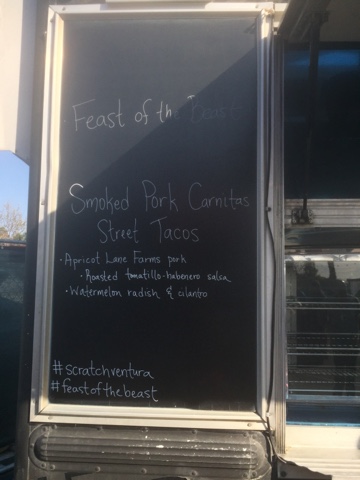 Feast of the Beast
Smoked Pork Carnitas
Street Tacos
· Apricot Lane Farms pork
· Roasted tomatillo-habenero salsa
· Watermelon radish & cilantro
#scratchventura
#feastofthebeast